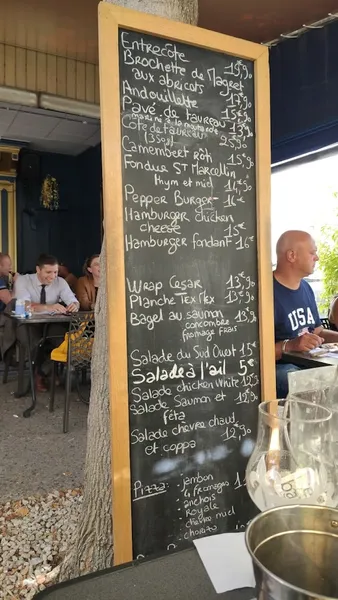 Entrecôte 19,90
Brochette de Magret
aux abricots
Andouillette
Pavé de taureau
mariné à la moutarde
Côte de taureau
Camembert rôti 15€90
Fondue ST Marcellin
thym et miel 14,90
Pepper Burger - 16€
Hamburger chicken
cheese 15€
Hamburger fondant 16€
Wrap Cesar 13,90
Planche Tex Mex 13€90
Bagel au saumon
concombre
fromage frais
Salade du Sud Ouest 15€
Salade à l'ail 5€
Salade chicken White
Salade Saumon et
féta
Salade chèvre chaud
et coppa 12,90
Pizza: - jambon
- 4 fromages
- anchois
- Royale
- chèvre miel
- chorizo
USA